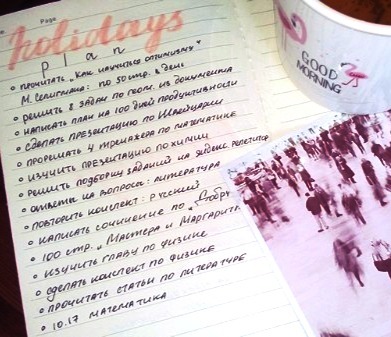 Page
holidays
plan
• прочитать „Как научиться оптимизму"
М. Селигмана: по 50 стр. в день
• решить 8 задач по геом. из документа
• написать план на 100 дней продуктивности
• сделать презентацию по Швейцарии
• прорешать 4 тренажера по математике
• изучить презентацию по химии
• решить подборку заданий на яндекс репетитор
• ответы на вопросы: литература
• повторить конспект: русский
• написать сочинение по „
• 100 стр. „Мастера и Маргариты
• изучить главу по физике
• сделать конспект по физике
• прочитать статьи по литературе
• 10.17 математика
GOOD
MORNING